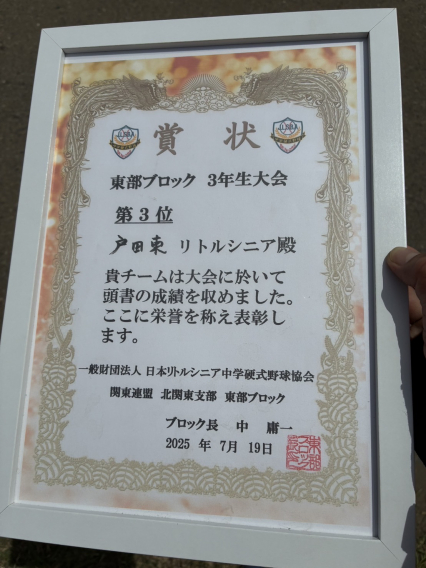 賞状
東部ブロック 3年生大会
第3位
戸田東 リトルシニア殿
貴チームは大会に於いて
頭書の成績を収めました。
ここに栄誉を称え表彰し
ます。
一般財団法人 日本リトルシニア中学硬式野球協会
関東連盟 北関東支部 東部ブロック
ブロック長 中 庸一
2025 年 7月 19日